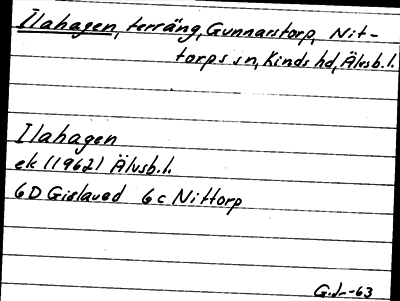 Ilahagen, terräng, Gunnarstorp, Nit-
torps sn, Kinds hd, Älvsb.l.
Ilahagen
ek (1962) Älvsb.l.
6D Gislaved 6c Nittorp